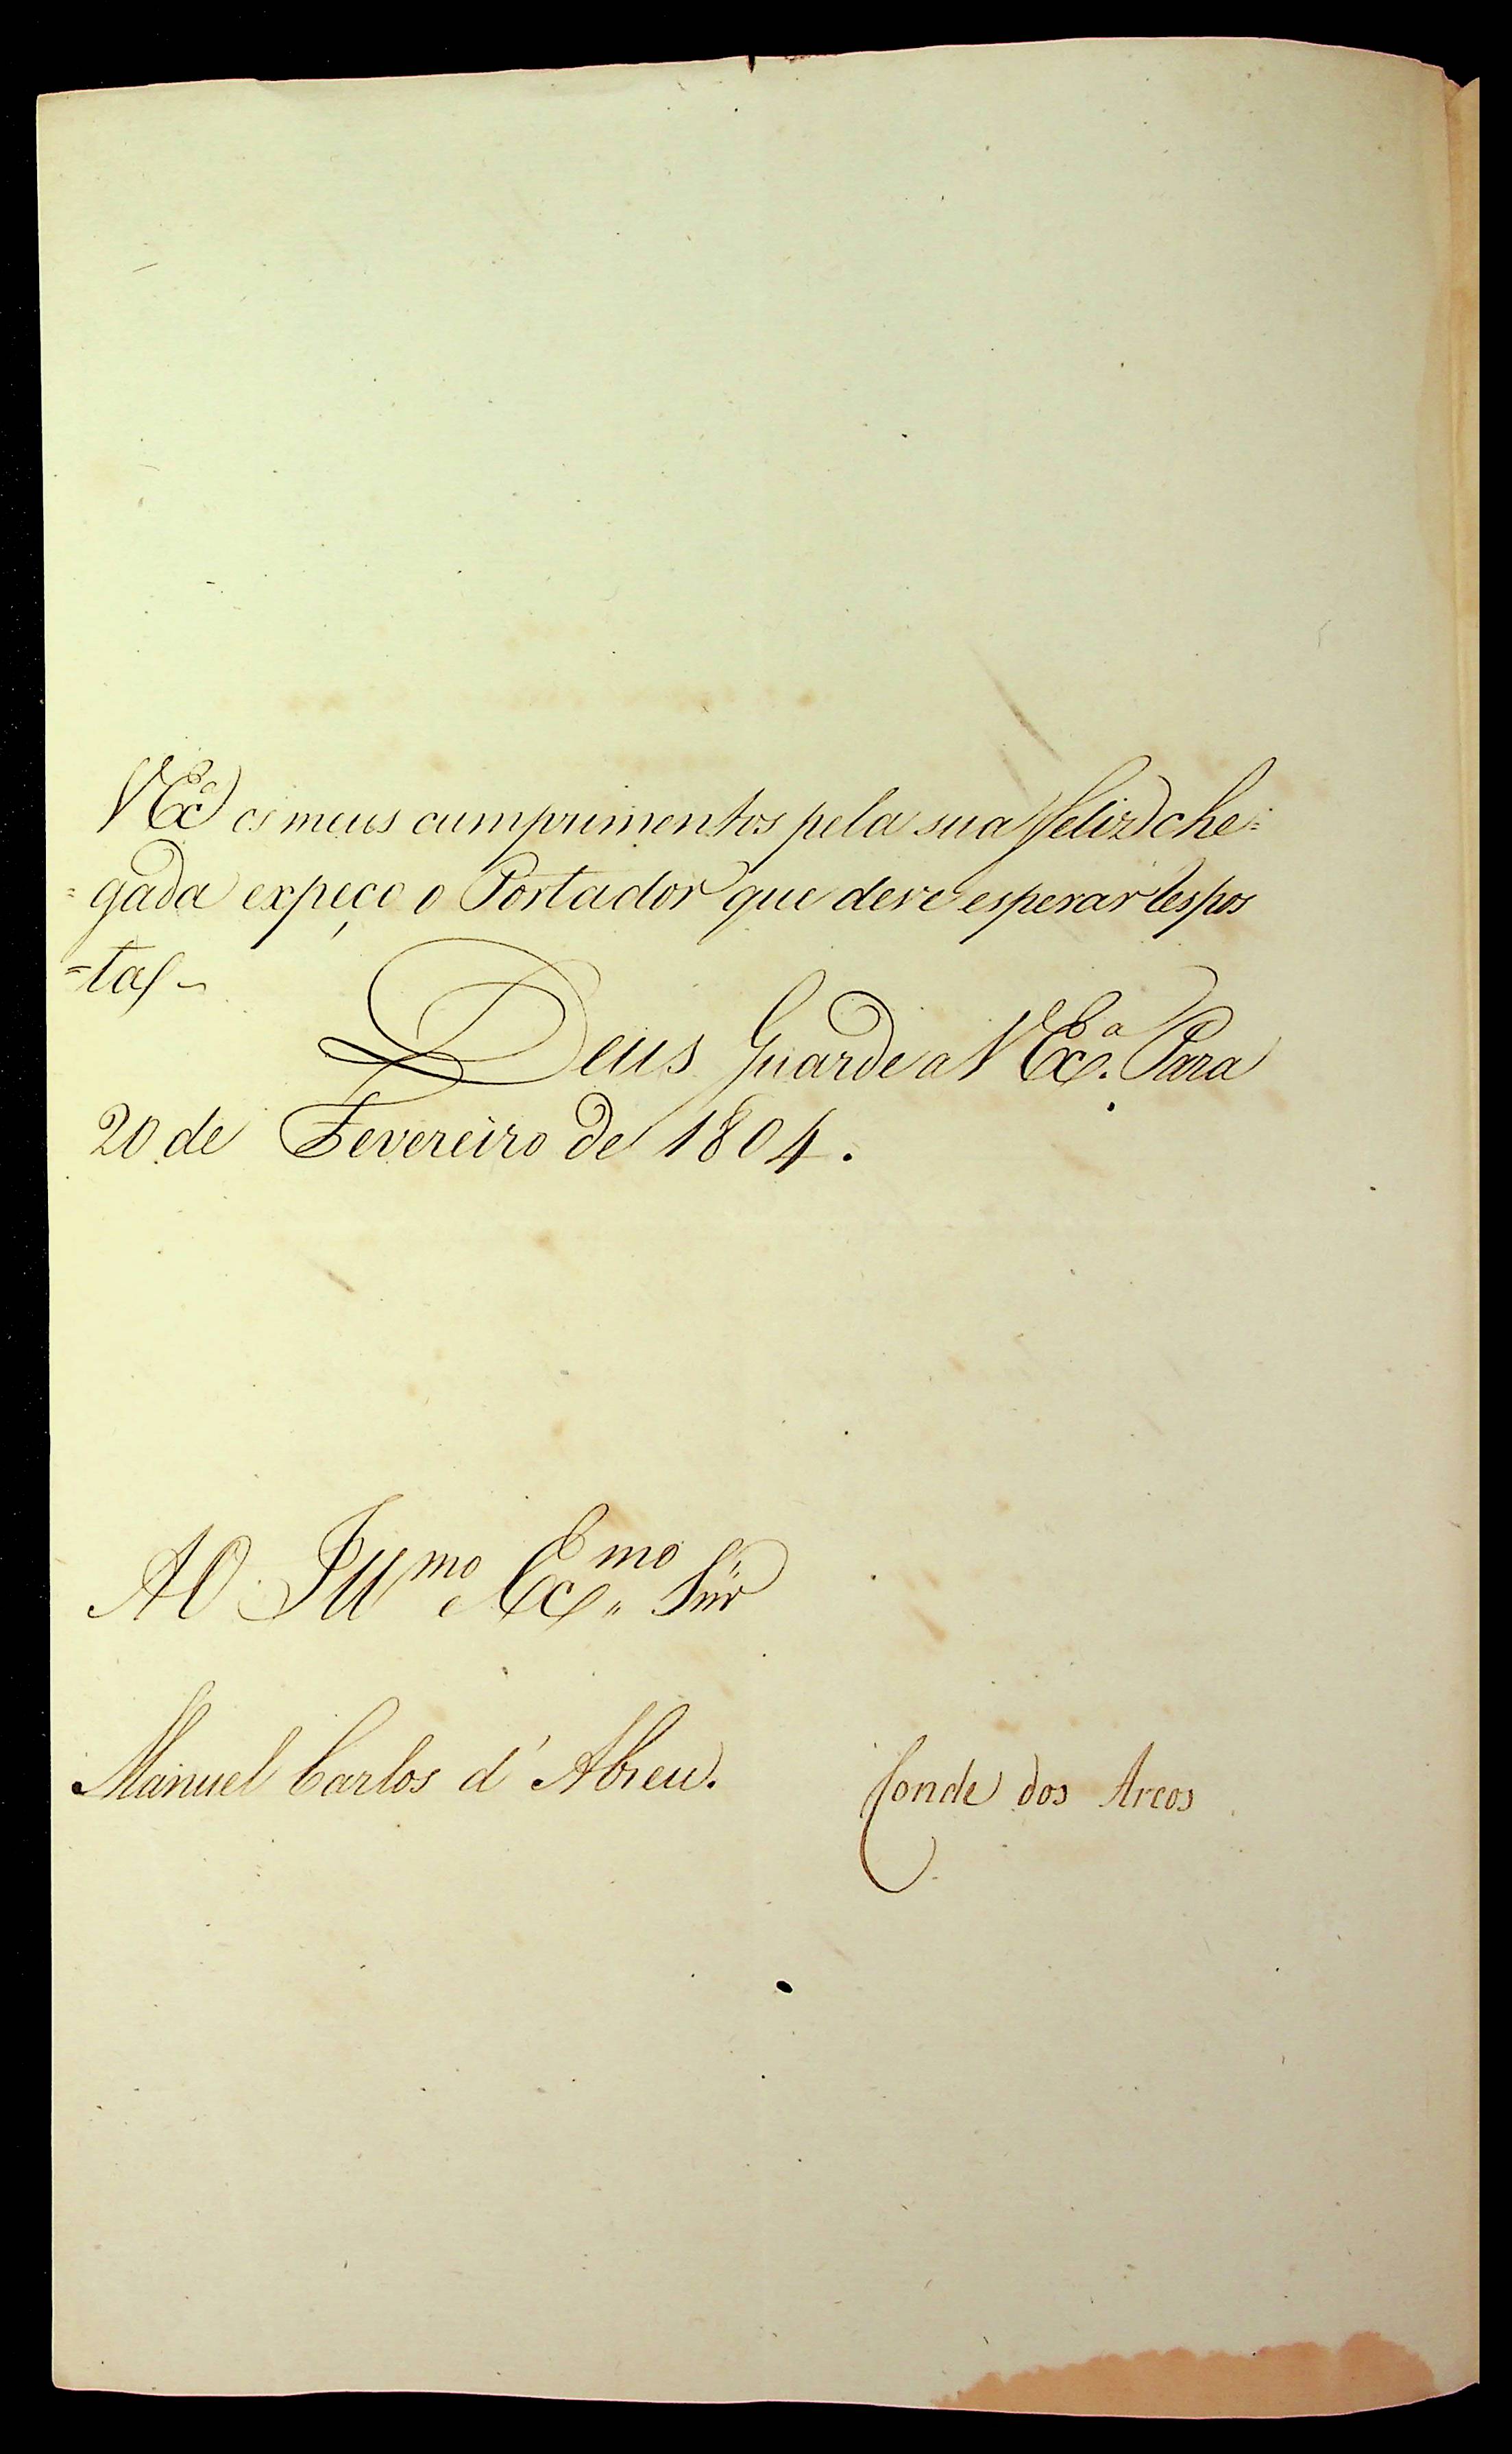 VEx.ª os meus cumprimentos pela sua feliz che=
=gada expeço o Portador que deve esperar respos
=tas
Deus Guarde a VEx.ª Para
20 de Fevereiro de 1804.
AO Ill.mo e Ex.mo Snr
Manuel Carlos d'Abreu.
Conde dos Arcos